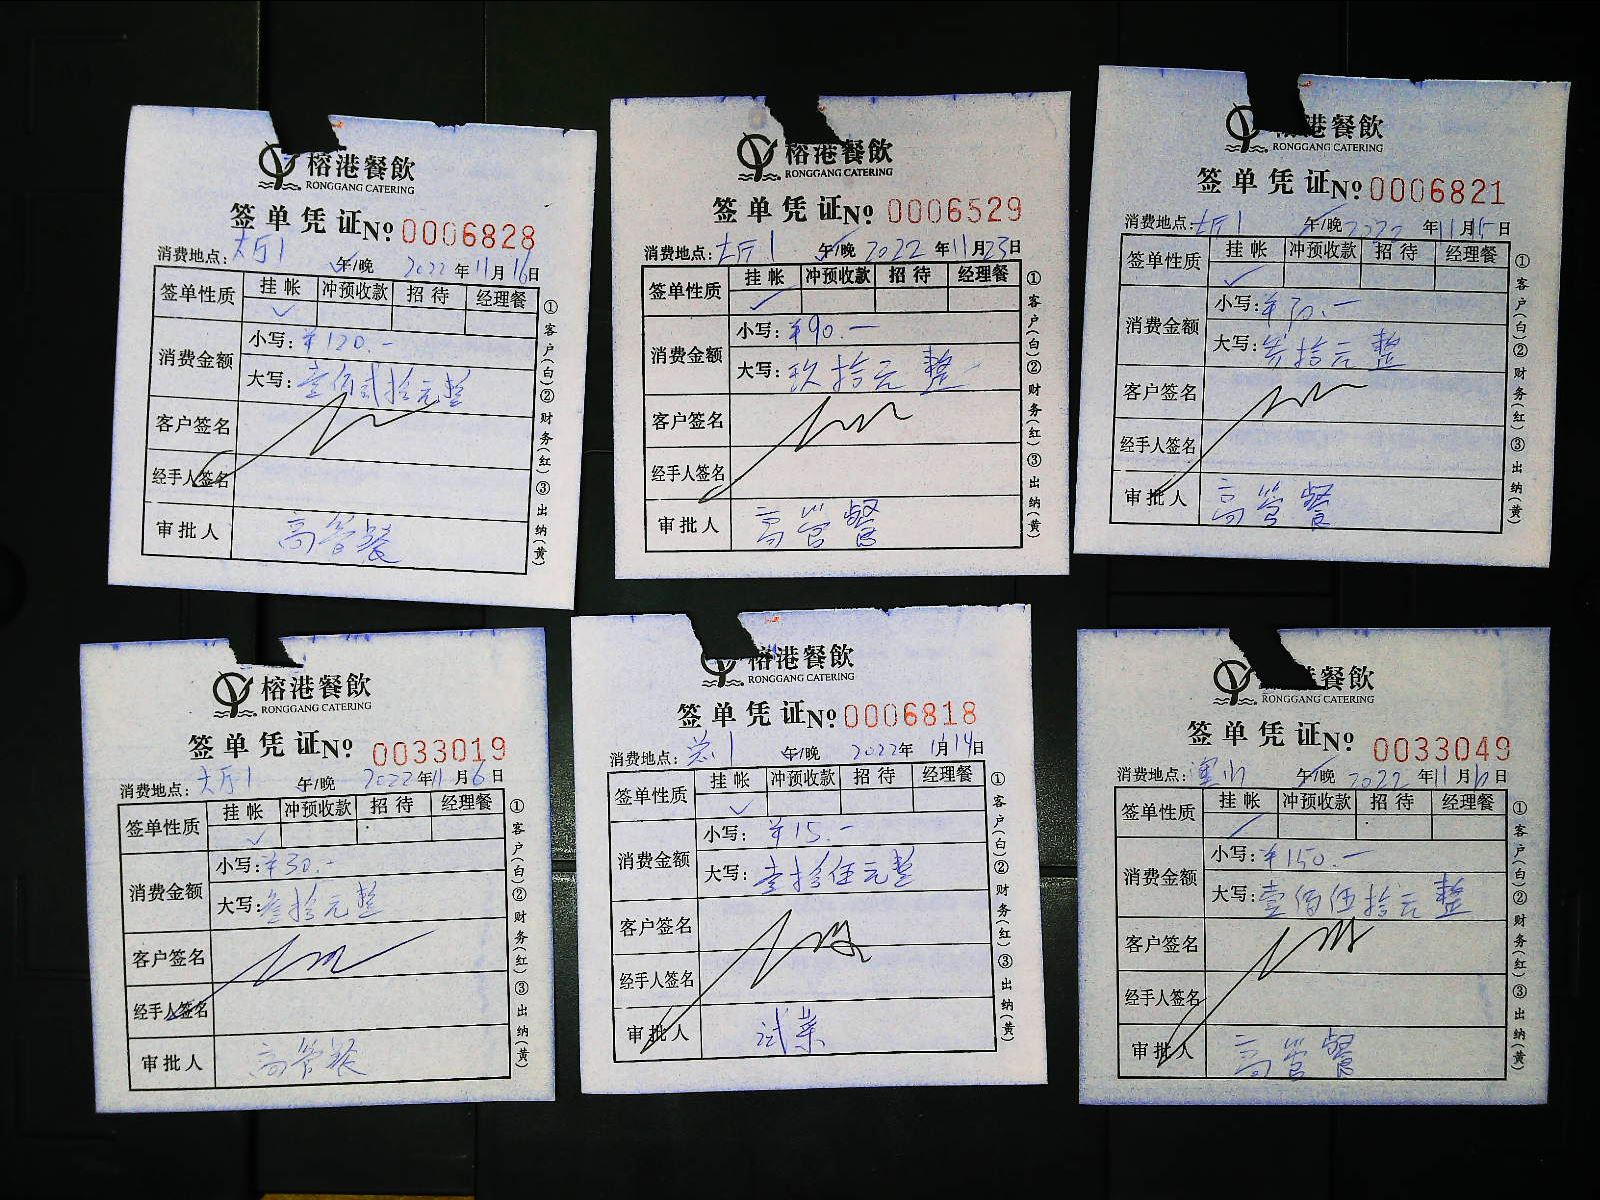 榕港餐飲
RONGGANG CATERING
签单凭证№ 0006828
消费地点：大厅1 午/晚 2022年11月16日
签单性质 挂帐 冲预收款 招待 经理餐
消费金额 小写：￥120.-
大写：壹佰贰拾元整
客户签名
经手人签名
审批人 高管餐
①客户(白)②财务(红)③出纳(黄)
榕港餐飲
RONGGANG CATERING
签单凭证№ 0006529
消费地点：大厅1 午/晚 2022年11月23日
签单性质 挂帐 冲预收款 招待 经理餐
消费金额 小写：￥90.-
大写：玖拾元整
客户签名
经手人签名
审批人 高管餐
①客户(白)②财务(红)③出纳(黄)
港餐飲
RONGGANG CATERING
签单凭证№ 0006821
消费地点：大厅1 午/晚 2022年11月15日
签单性质 挂帐 冲预收款 招待 经理餐
消费金额 小写：￥30.-
大写：叁拾元整
客户签名
经手人签名
审批人 高管餐
①客户(白)②财务(红)③出纳(黄)
榕港餐飲
RONGGANG CATERING
签单凭证№ 0033019
消费地点：大厅1 午/晚 2022年11月6日
签单性质 挂帐 冲预收款 招待 经理餐
消费金额 小写：￥30.-
大写：叁拾元整
客户签名
经手人签名
审批人 高管餐
①客户(白)②财务(红)③出纳(黄)
榕港餐飲
RONGGANG CATERING
签单凭证№ 0006818
消费地点： 午/晚 2022年11月14日
签单性质 挂帐 冲预收款 招待 经理餐
消费金额 小写：￥15.-
大写：壹拾伍元整
客户签名
经手人签名
审批人 试菜
①客户(白)②财务(红)③出纳(黄)
港餐飲
RONGGANG CATERING
签单凭证№ 0033049
消费地点： 午/晚 2022年11月10日
签单性质 挂帐 冲预收款 招待 经理餐
消费金额 小写：￥150.-
大写：壹佰伍拾元整
客户签名
经手人签名
审批人 高管餐
①客户(白)②财务(红)③出纳(黄)